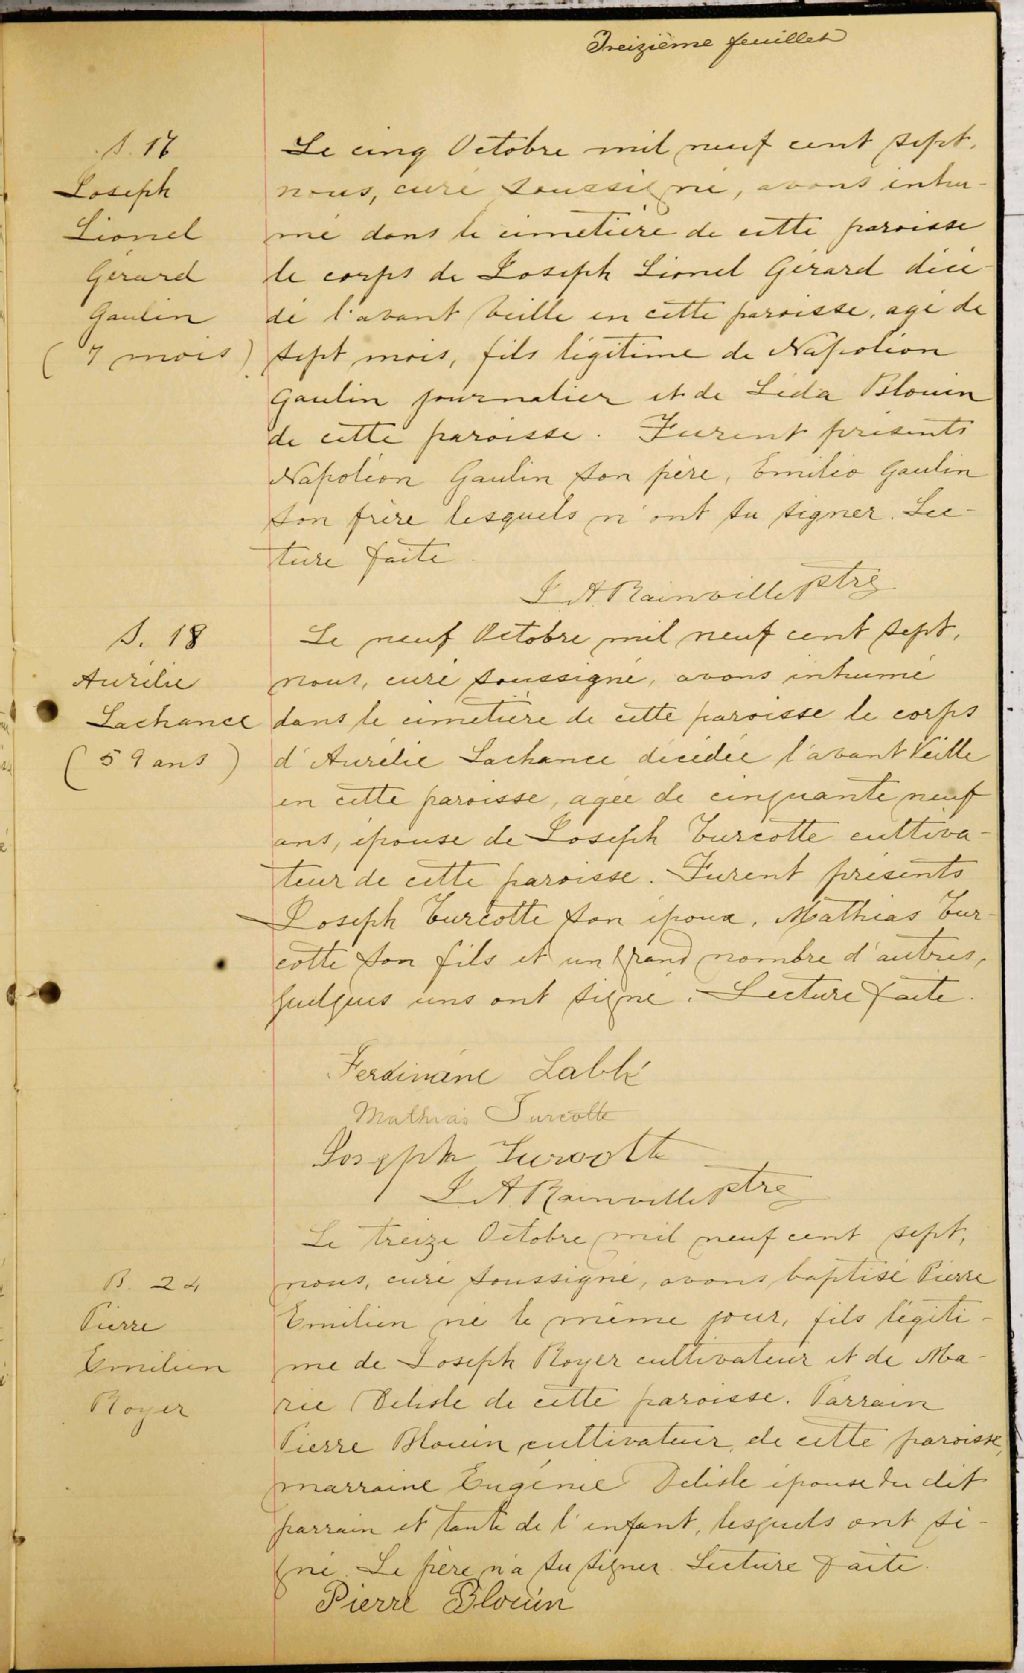 Treizième feuillet
S. 17
Joseph
Lionel
Gérard
Gaulin
(7 mois)
Le cinq Octobre mil neuf cent sept,
nous, curé soussigné, avons inhu-
mé dans le cimetière de cette paroisse
le corps de Joseph Lionel Gérard décé-
dé l'avant veille en cette paroisse, agé de
sept mois, fils légitime de Napoléon
Gaulin journalier et de Léda Blouin
de cette paroisse. Furent présents
Napoléon Gaulin son père, Emilio Gaulin
son frère lesquels n'ont su signer. Lec-
ture faite
J. A. Rainville Ptre
S. 18
Aurélie
Lachance
(59 ans)
Le neuf Octobre mil neuf cent sept,
nous, curé soussigné, avons inhumé
dans le cimetière de cette paroisse le corps
d'Aurélie Lachance décédée l'avant Veille
en cette paroisse, agée de cinquante neuf
ans, épouse de Joseph Turcotte cultiva-
teur de cette paroisse. Furent présents
Joseph Turcotte son époux, Mathias Tur-
cotte son fils et un grand nombre d'autres,
quelques uns ont signé. Lecture faite.
Ferdinand Labbé
Mathias Turcotte
Joseph Turcotte
J. A. Rainville Ptre
B. 24
Pierre
Emilien
Royer
Le treize Octobre mil neuf cent sept,
nous, curé soussigné, avons baptisé Pierre
Emilien né le même jour, fils légiti-
me de Joseph Royer cultivateur et de Ma-
rie Delisle de cette paroisse. Parrain
Pierre Blouin cultivateur de cette paroisse,
marraine Eugénie Delisle épouse du dit
parrain et tante de l'enfant, lesquels ont si-
gné. Le père n'a su signer. Lecture faite
Pierre Blouin